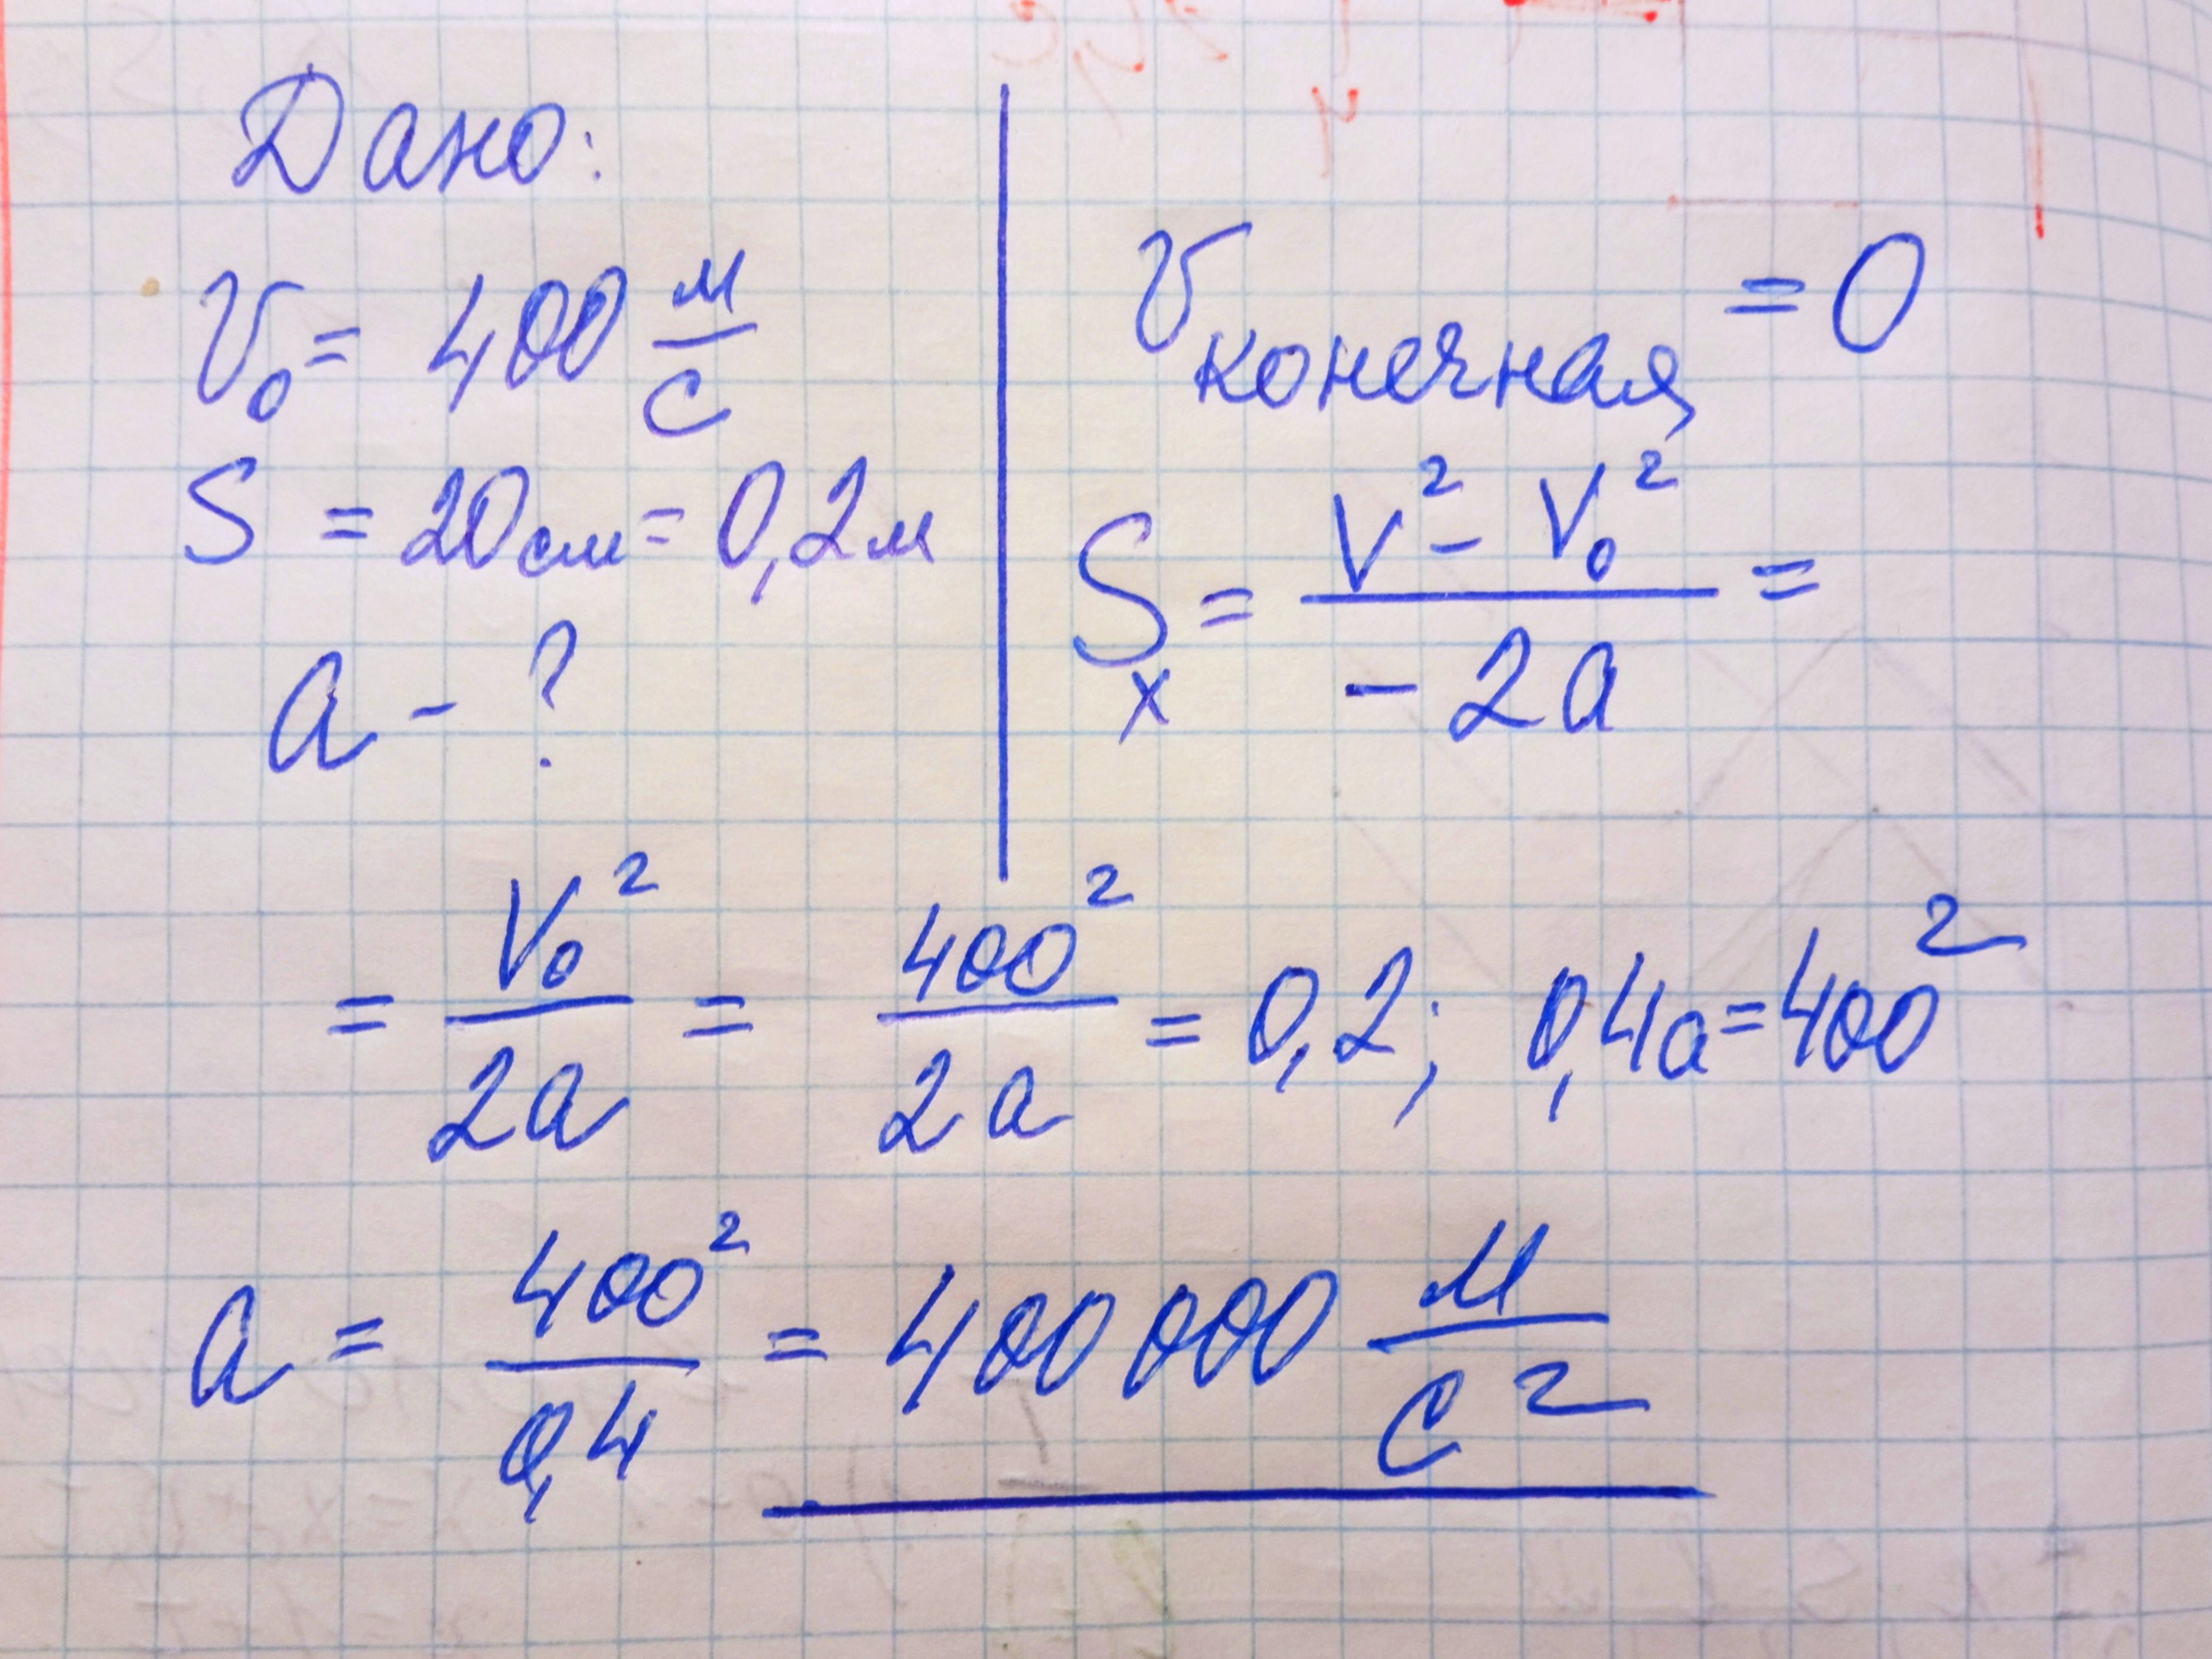 Дано:
v₀ = 400 м/с
S = 20 см = 0,2 м
a - ?
v конечная = 0
Sₓ = (V² - V₀²)/(-2a) =
= V₀²/(2a) = 400²/(2a) = 0,2; 0,4a = 400²
a = 400²/0,4 = 400 000 м/с²